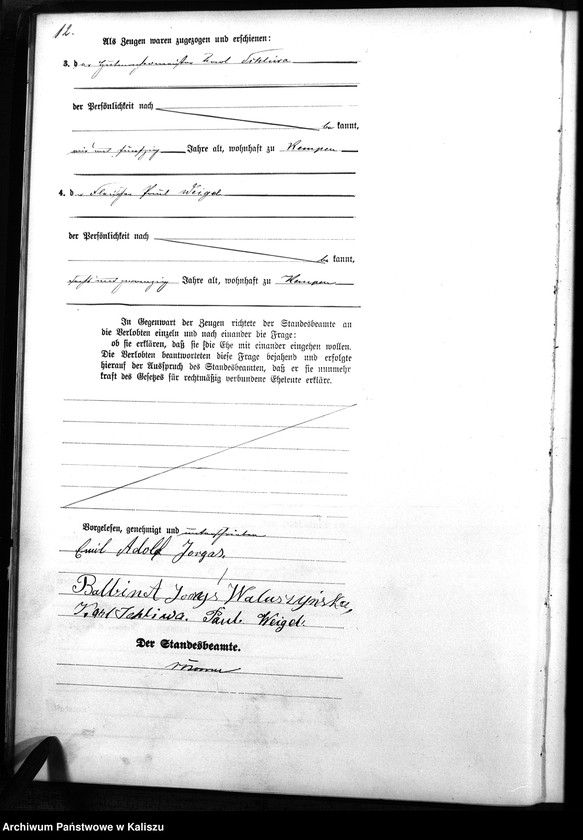 12.
Als Zeugen waren zugezogen und erschienen:
3. der Karl Schliwa
der Persönlichkeit nach
be kannt,
und fünfzig Jahre alt, wohnhaft zu Kempen
4. der Fleischer Paul Weigel
der Persönlichkeit nach
be kannt,
sechs und zwanzig Jahre alt, wohnhaft zu Kempen
In Gegenwart der Zeugen richtete der Standesbeamte an
die Verlobten einzeln und nach einander die Frage:
ob sie erklären, daß sie die Ehe mit einander eingehen wollen.
Die Verlobten beantworteten diese Frage bejahend und erfolgte
hierauf der Ausspruch des Standesbeamten, daß er sie nunmehr
kraft des Gesetzes für rechtmäßig verbundene Eheleute erkläre.
Vorgelesen, genehmigt und unterschrieben
Emil Adolf Jorgas,
Jorgs Waluszyńska,
Karl Schliwa. Paul Weigel.
Der Standesbeamte.
Archiwum Państwowe w Kaliszu